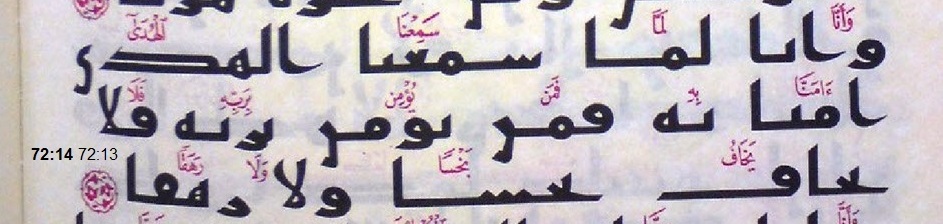 وَأَنَّا لَمَّا سَمِعْنَا الْهُدَىٰٓ
وانا لما سمعنا الهدى
ءَامَنَّا بِهِ فَمَن يُؤْمِن بِرَبِّهِ فَلَا
امنا به فمن يومن بربه فلا
72:14 72:13
يَخَافُ بَخْسًا وَلَا رَهَقًا
يخاف بخسا ولا رهقا